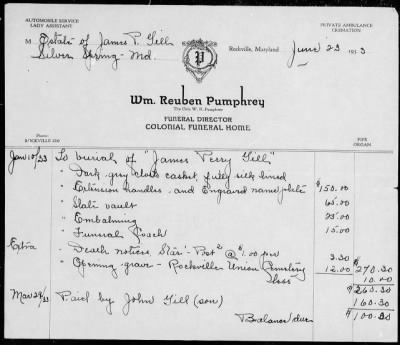 AUTOMOBILE SERVICE
LADY ASSISTANT
PRIVATE AMBULANCE
CREMATION
M Estate of James P. Gill
Silver Spring - Md.
Rockville, Maryland, June 23 1933
P
Wm. Reuben Pumphrey
The Only W. R. Pumphrey
FUNERAL DIRECTOR
COLONIAL FUNERAL HOME
Phone:
ROCKVILLE
PIPE
ORGAN
Jan 10/33 To burial of "James Perry Gill"
" Dark grey cloth casket, fully silk lined
" Extension handles - and Engraved name plate $150.00
" Slate vault 65.00
" Embalming 25.00
" Funeral Coach 15.00
Extra " Death notices, Star - Post @ $1.00 per 3.30
" Opening grave - Rockville Union Cemetery 12.00 $270.30
Less 10.00
$260.30
Mar 29/33 Paid by John Gill (son) 160.30
Balance due $100.00